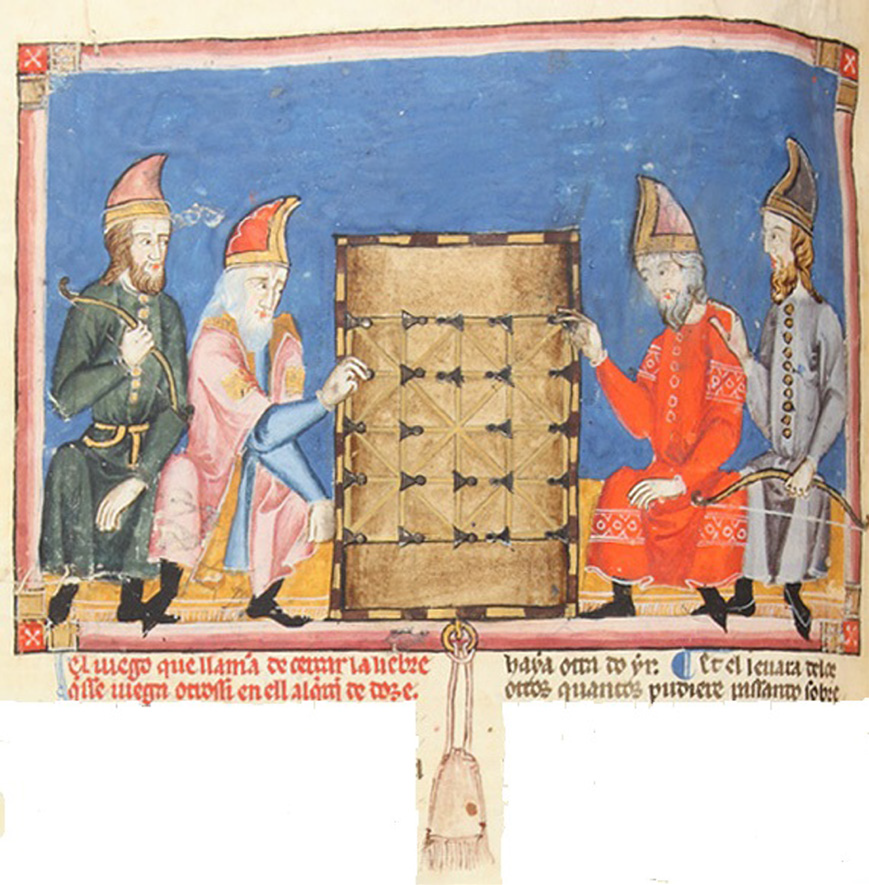 El iuego que llamã de cercar la liebre
q̃sse iuega otrossi en ell alq̃rq̃ de doze.
haya otra do yr. Et el leuara delos
otros quantos pudiere passando sobre